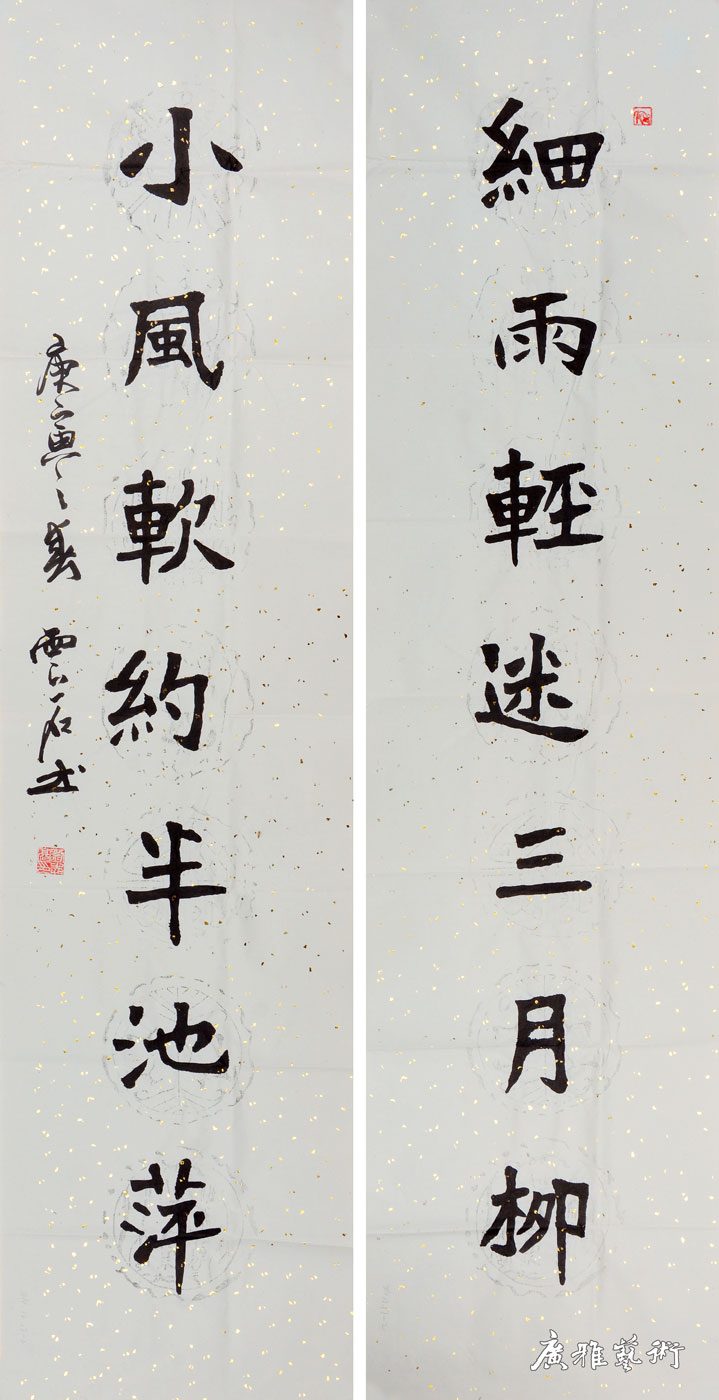 細雨輕迷三月柳
小風軟約半池萍
庚寅之春 雲石书
廣雅藝術